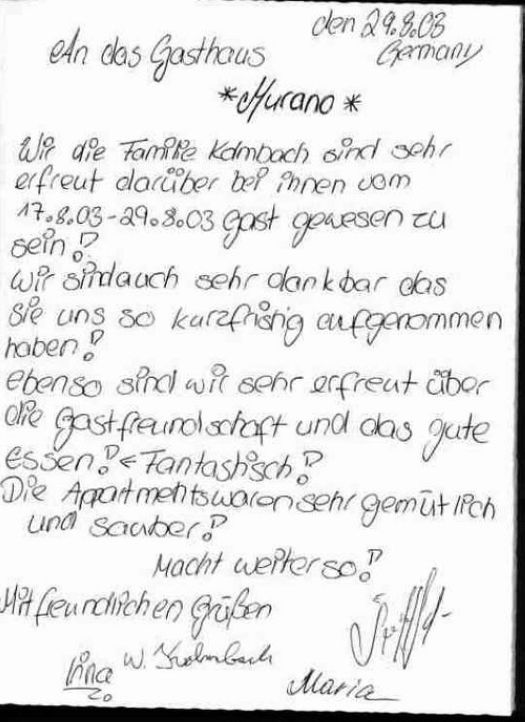 den 29.8.03
Germany
An das Gasthaus
*Murano*
Wir die Familie Kambach sind sehr
erfreut darüber bei ihnen vom
17.8.03-29.8.03 gast gewesen zu
sein!
Wir sind auch sehr dankbar das
Sie uns so kurzfristig aufgenommen
haben!
ebenso sind wir sehr erfreut über
die Gastfreundschaft und das gute
essen! ← Fantastisch!
Die Appartments waren sehr gemütlich
und sauber!
Macht weiter so!
Mit freundlichen Grüßen
W.
Maria